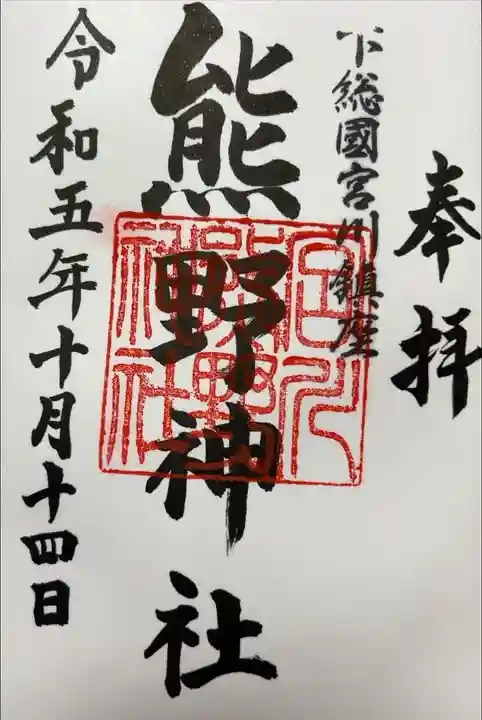 奉拝
下総國宮川鎮座
熊野神社
令和五年十月十四日